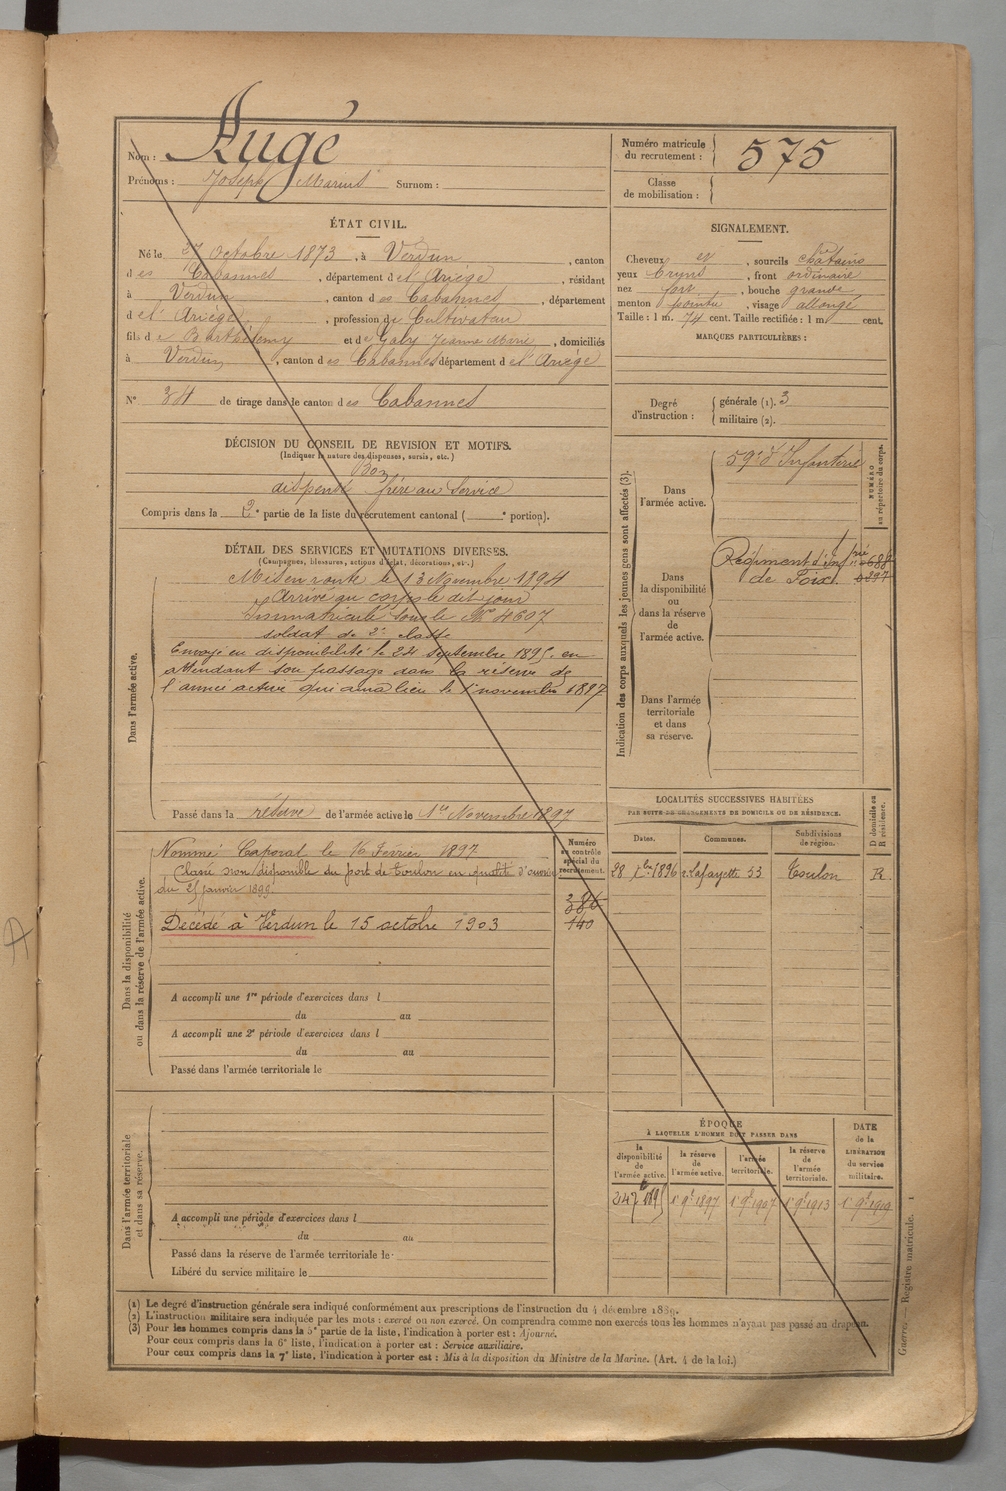 Nom : Augé
Prénoms : Joseph Marius Surnom :
Numéro matricule du recrutement : 575
Classe de mobilisation :
ÉTAT CIVIL.
Né le 27 octobre 1873, à Verdun, canton
d es Cabannes, département d e l'Ariège, résidant
à Verdun, canton d es Cabannes, département
d e l'Ariège, profession de Cultivateur
fils d e Barthélemy et de Galy Jeanne Marie, domiciliés
à Verdun, canton d es Cabannes département d e l'Ariège
N° 34 de tirage dans le canton d es Cabannes
SIGNALEMENT.
Cheveux et, sourcils châtains
yeux bruns, front ordinaire
nez fort, bouche grande
menton pointu, visage allongé
Taille : 1 m. 74 cent. Taille rectifiée : 1 m. cent.
MARQUES PARTICULIÈRES :
Degré d'instruction : générale (1). 3
militaire (2).
DÉCISION DU CONSEIL DE REVISION ET MOTIFS.
(Indiquer la nature des dispenses, sursis, etc.)
Bon
dispensé frère au service
Compris dans la 2e partie de la liste du recrutement cantonal ( e portion).
DÉTAIL DES SERVICES ET MUTATIONS DIVERSES.
(Campagnes, blessures, actions d'éclat, décorations, etc.)
Dans l'armée active.
Mis en route le 13 Novembre 1894
Arrivé au corps le dit jour
Immatriculé sous le N° 4607
soldat de 2e classe
Envoyé en disponibilité le 24 septembre 1895 en
attendant son passage dans la réserve de
l'armée active qui aura lieu le 1er novembre 1897
Passé dans la réserve de l'armée active le 1er Novembre 1897
Indication des corps auxquels les jeunes gens sont affectés (3).
NUMÉRO au répertoire du corps.
Dans l'armée active.
59e d'Infanterie
Dans la disponibilité ou dans la réserve de l'armée active.
Régiment d'inf
de Foix
Dans l'armée territoriale et dans sa réserve.
LOCALITÉS SUCCESSIVES HABITÉES
PAR SUITE DE CHANGEMENTS DE DOMICILE OU DE RÉSIDENCE.
D domicile ou R résidence.
Dates. Communes. Subdivisions de région.
28 1896 r. Lafayette 53 Toulon R.
Dans la disponibilité ou dans la réserve de l'armée active.
Numéro au contrôle spécial du recrutement.
Nommé Caporal le 16 Février 1897
Classé non disponible du port de Toulon en qualité d'ouvrier
du 25 janvier 1899
Décédé à Verdun le 15 octobre 1903
140
A accompli une 1re période d'exercices dans l
du au
A accompli une 2e période d'exercices dans l
du au
Passé dans l'armée territoriale le
Dans l'armée territoriale et dans sa réserve.
A accompli une période d'exercices dans l
du au
Passé dans la réserve de l'armée territoriale le
Libéré du service militaire le
ÉPOQUE
À LAQUELLE L'HOMME DOIT PASSER DANS
la disponibilité de l'armée active.
la réserve de l'armée active.
l'armée territoriale.
la réserve de l'armée territoriale.
DATE de la LIBÉRATION du service militaire.
1895 1er 9bre 1897 1er 9bre 1907 1er 9bre 1913 1er 9bre 1919
(1) Le degré d'instruction générale sera indiqué conformément aux prescriptions de l'instruction du 4 décembre 1889.
(2) L'instruction militaire sera indiquée par les mots : exercé ou non exercé. On comprendra comme non exercés tous les hommes n'ayant pas passé au drapeau.
(3) Pour les hommes compris dans la 5e partie de la liste, l'indication à porter est : Ajourné.
Pour ceux compris dans la 6e liste, l'indication à porter est : Service auxiliaire.
Pour ceux compris dans la 7e liste, l'indication à porter est : Mis à la disposition du Ministre de la Marine. (Art. 4 de la loi.)
Guerre. Registre matricule. 1
A